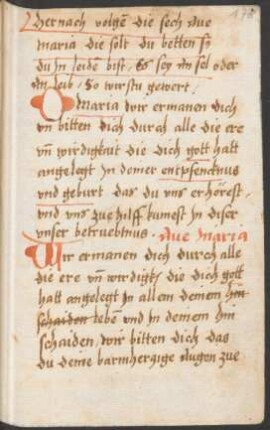 Hernach volgen die sech Aue
maria die solt du betten so
du in leiden bist / Es sey an sel oder
an leib / So wirstu gewert /
O Maria wir ermanen dich
vn bitten dich durch alle die ere
vn wirdigkait die dich gott hatt
angelegt In deiner entpfencknus
vnd geburt das du vns erhörest
vnd vns zue hilff kumest In diser
vnser betruebtnus · Aue Maria
Wir ermanen dich durch alle
die ere vn wirdigk die dich gott
hatt angelegt In allem deinem hin
schaiden leben vnd In deinem hin
schaiden / wir bitten dich das
du deine barmhertzige Augen zue